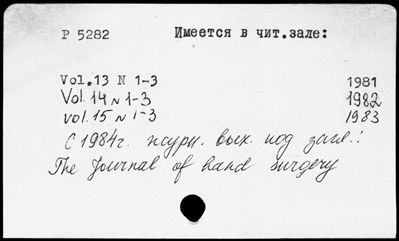 P 5282 Имеется в чит.зале:
Vol.13 N 1-3 1981
Vol.14 N 1-3 1982
vol.15 N 1-3 1983
С 1984г. журн. вых. под загл.:
The Journal of hand surgery